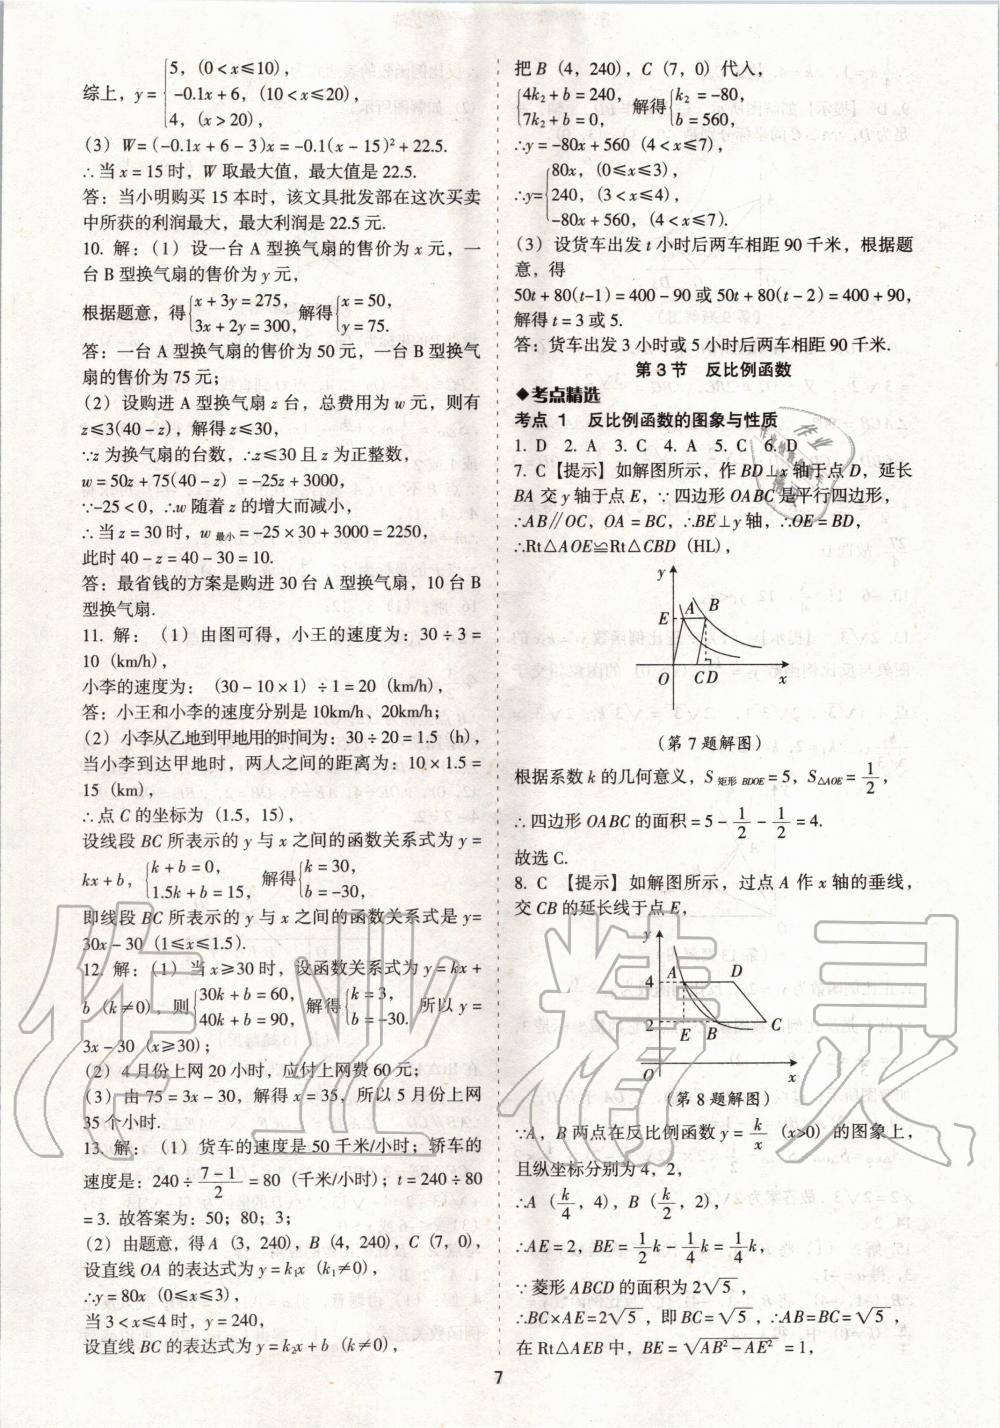 综上，y = { 5，(0 < x ≤ 10)，
-0.1x + 6，(10 < x ≤ 20)，
4，(x > 20)，
(3) W = (-0.1x + 6 - 3)x = -0.1(x - 15)² + 22.5.
∴当 x = 15 时，W 取最大值，最大值是 22.5.
答：当小明购买 15 本时，该文具批发部在这次买卖
中所获的利润最大，最大利润是 22.5 元.
10. 解：(1) 设一台 A 型换气扇的售价为 x 元，一
台 B 型换气扇的售价为 y 元，
根据题意，得 { x + 3y = 275， 3x + 2y = 300， 解得 { x = 50， y = 75.
答：一台 A 型换气扇的售价为 50 元，一台 B 型换气
扇的售价为 75 元；
(2) 设购进 A 型换气扇 z 台，总费用为 w 元，则有
z ≤ 3(40 - z)，解得 z ≤ 30，
∵z 为换气扇的台数，∴z ≤ 30 且 z 为正整数，
w = 50z + 75(40 - z) = -25z + 3000，
∵-25 < 0，∴w 随着 z 的增大而减小，
∴当 z = 30 时，w 最小 = -25 × 30 + 3000 = 2250，
此时 40 - z = 40 - 30 = 10.
答：最省钱的方案是购进 30 台 A 型换气扇，10 台 B
型换气扇.
11. 解：(1) 由图可得，小王的速度为：30 ÷ 3 =
10 (km/h)，
小李的速度为：(30 - 10 × 1) ÷ 1 = 20 (km/h)，
答：小王和小李的速度分别是 10km/h、20km/h；
(2) 小李从乙地到甲地用的时间为：30 ÷ 20 = 1.5 (h)，
当小李到达甲地时，两人之间的距离为：10 × 1.5 =
15 (km)，
∴点 C 的坐标为 (1.5，15)，
设线段 BC 所表示的 y 与 x 之间的函数关系式为 y =
kx + b，{ k + b = 0， 1.5k + b = 15， 解得 { k = 30， b = -30，
即线段 BC 所表示的 y 与 x 之间的函数关系式是 y=
30x - 30 (1 ≤ x ≤ 1.5).
12. 解：(1) 当 x ≥ 30 时，设函数关系式为 y = kx +
b (k ≠ 0)，则 { 30k + b = 60， 40k + b = 90， 解得 { k = 3， b = -30. 所以 y =
3x - 30 (x ≥ 30)；
(2) 4 月份上网 20 小时，应付上网费 60 元；
(3) 由 75 = 3x - 30，解得 x = 35，所以 5 月份上网
35 个小时.
13. 解：(1) 货车的速度是 50 千米/小时；轿车的
速度是：240 ÷ (7 - 1)/2 = 80 (千米/小时)；t = 240 ÷ 80
= 3. 故答案为：50；80；3；
(2) 由题意，得 A (3，240)，B (4，240)，C (7，0)，
设直线 OA 的表达式为 y = k₁x (k₁ ≠ 0)，
∴y = 80x (0 ≤ x ≤ 3)，
当 3 < x ≤ 4 时，y = 240，
设直线 BC 的表达式为 y = k₂x + b (k ≠ 0)，
把 B (4，240)，C (7，0) 代入，
{ 4k₂ + b = 240， 7k₂ + b = 0， 解得 { k₂ = -80， b = 560，
∴y = -80x + 560 (4 < x ≤ 7)，
∴y = { 80x，(0 ≤ x ≤ 3)，
240，(3 < x ≤ 4)，
-80x + 560，(4 < x ≤ 7).
(3) 设货车出发 t 小时后两车相距 90 千米，根据题
意，得
50t + 80(t-1) = 400 - 90 或 50t + 80(t - 2) = 400 + 90，
解得 t = 3 或 5.
答：货车出发 3 小时或 5 小时后两车相距 90 千米.
第 3 节 反比例函数
◆考点精选
考点 1 反比例函数的图象与性质
1. D 2. A 3. C 4. A 5. C 6. D
7. C【提示】如解图所示，作 BD⊥x 轴于点 D，延长
BA 交 y 轴于点 E，∵四边形 OABC 是平行四边形，
∴AB∥OC，OA = BC，∴BE⊥y 轴，∴OE = BD，
∴Rt△AOE≌Rt△CBD (HL)，
y
E A B
O C D x
(第 7 题解图)
根据系数 k 的几何意义，S 矩形 BDOE = 5，S△AOE = 1/2，
∴四边形 OABC 的面积 = 5 - 1/2 - 1/2 = 4.
故选 C.
8. C【提示】如解图所示，过点 A 作 x 轴的垂线，
交 CB 的延长线于点 E，
y
4 A D
2 E B C
O x
(第 8 题解图)
∵A，B 两点在反比例函数 y = k/x (x>0) 的图象上，
且纵坐标分别为 4，2，
∴A (k/4，4)，B (k/2，2)，
∴AE = 2，BE = 1/2 k - 1/4 k = 1/4 k，
∵菱形 ABCD 的面积为 2√5，
∴BC×AE = 2√5，即 BC = √5，∴AB = BC = √5，
在 Rt△AEB 中，BE = √(AB² - AE²) = 1，
7
作业精灵